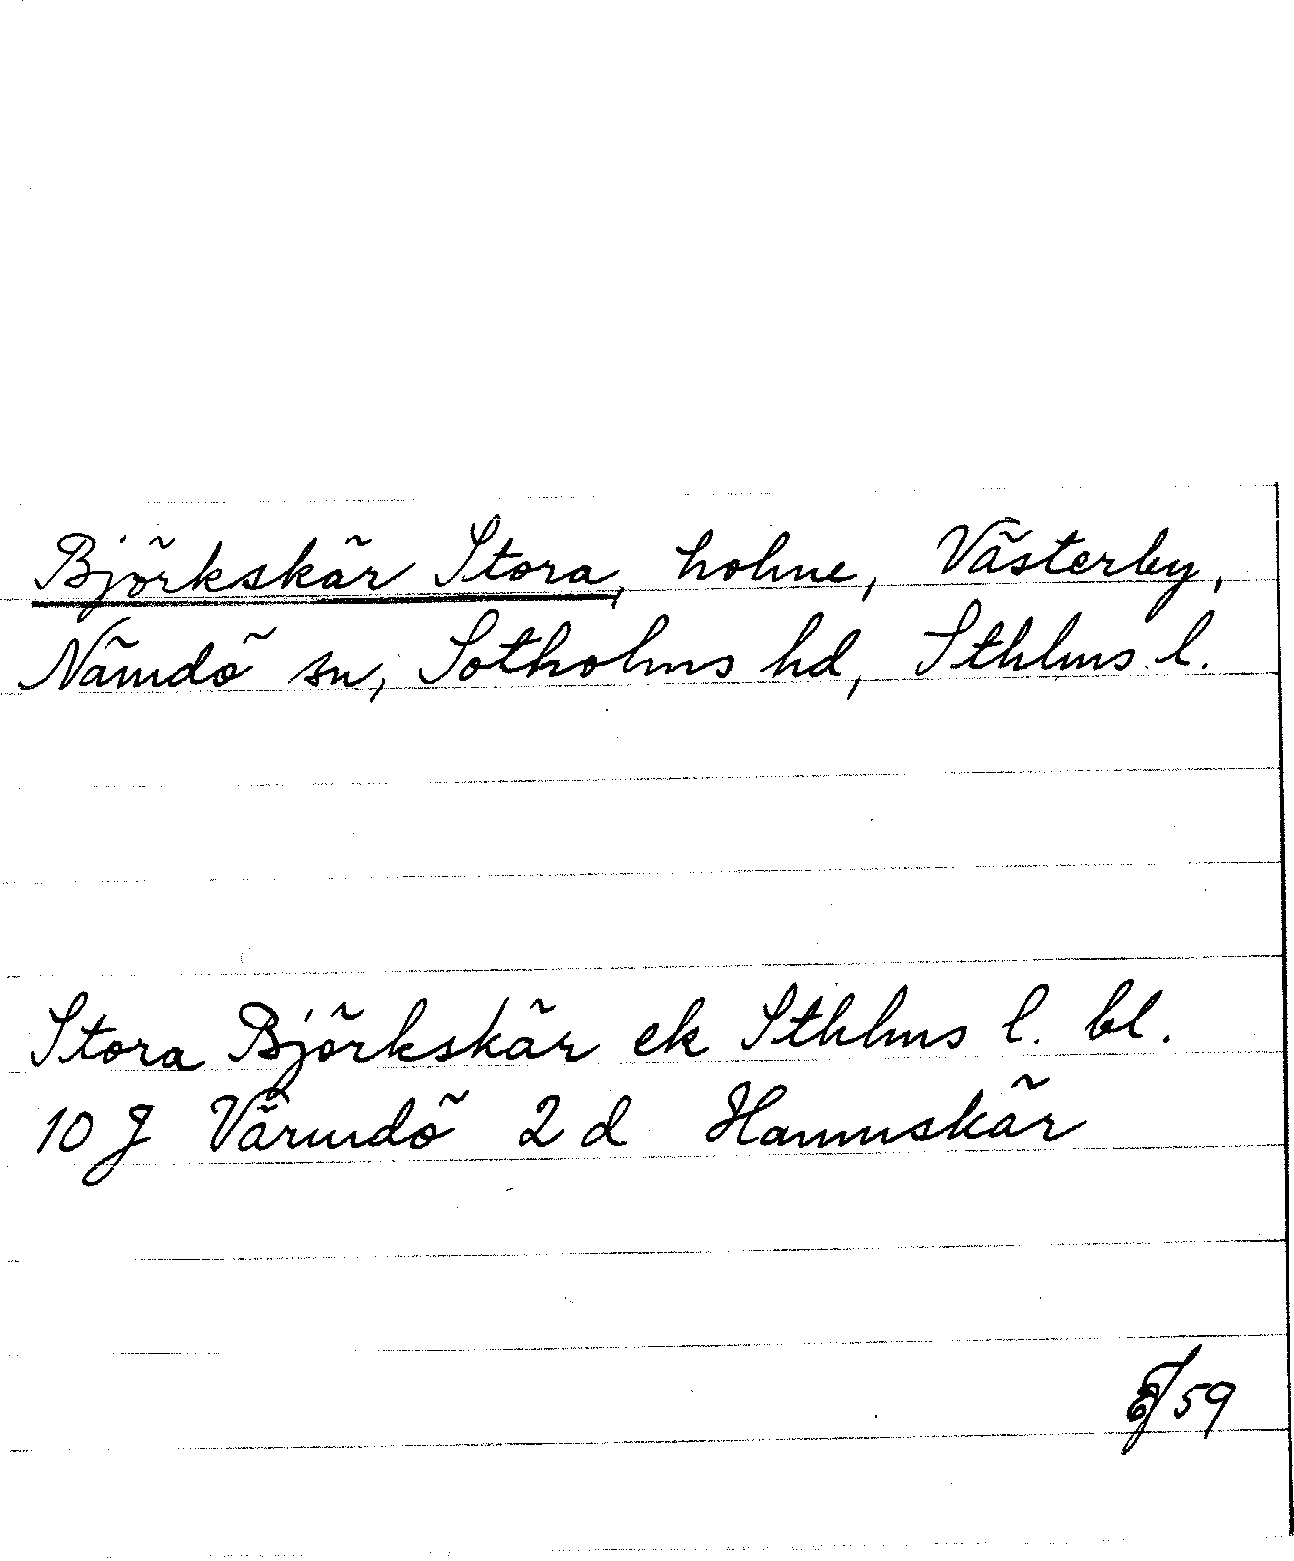 Björkskär Stora, holme, Västerby,
Nämdö sn, Sotholms hd, Sthlms l.
Stora Björkskär ek Sthlms l. bl.
10 J Värmdö 2 d Hamnskär
59